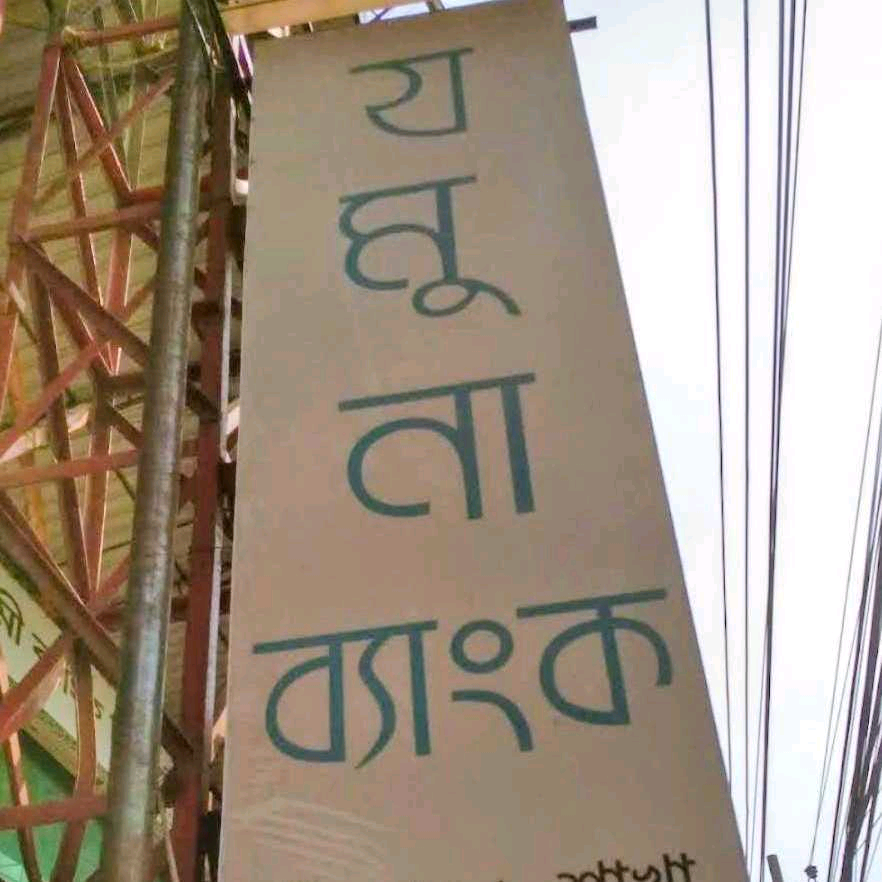 য
মু
না
ব্যাংক